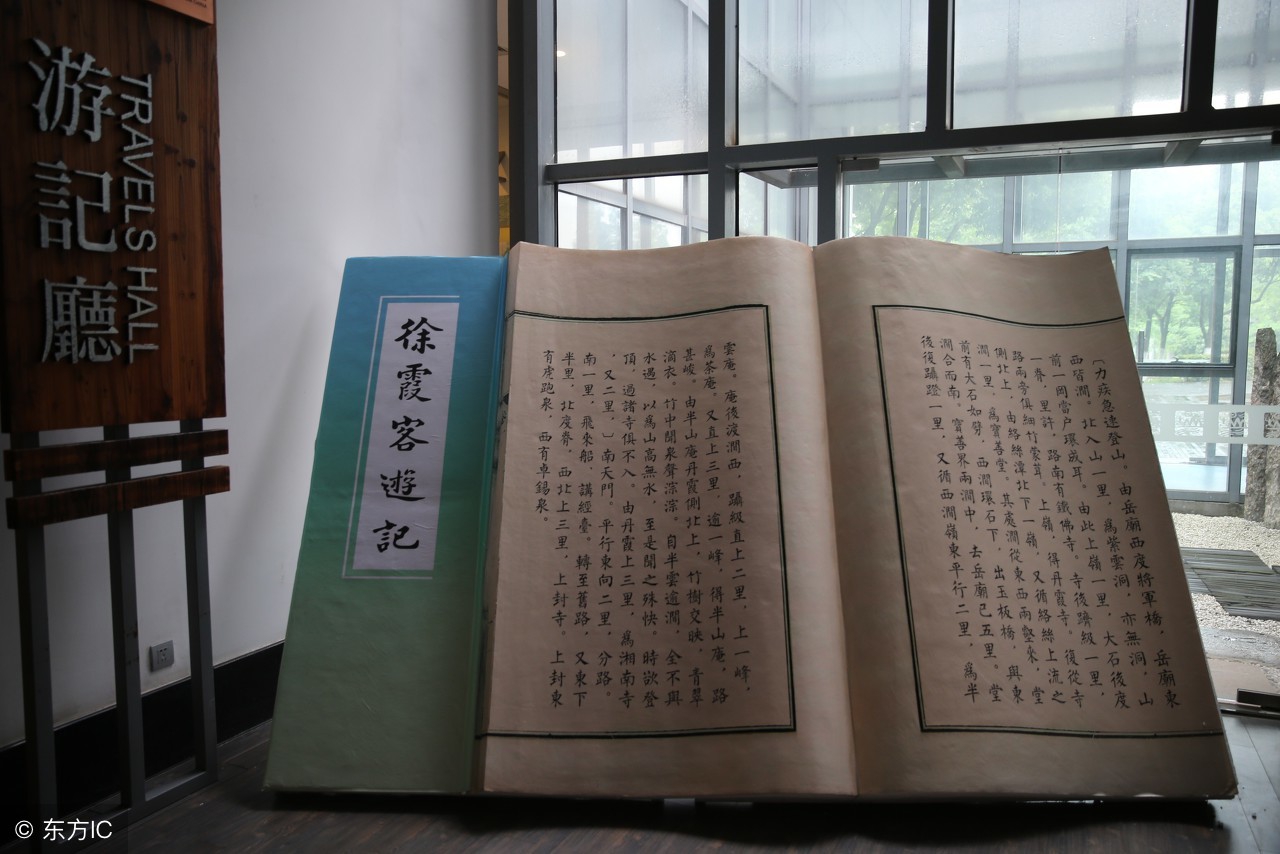 游記廳
TRAVELS HALL
徐霞客遊記
〔力疾急速登山。由岳廟西度將軍橋,岳廟東
西皆澗。北入山一里,爲紫雲洞,亦無洞,山
前一岡當户環成耳。由此上嶺一里,大石後度
一脊,里許,路南有鐵佛寺。寺後躋級一里,
路兩旁俱細竹蒙茸。上嶺,得丹霞寺。復從寺
側北上,由絡絲潭北下一嶺,又循絡絲上流之
澗一里,爲寶善堂。其處澗從東西兩壑來,堂
前有大石如劈,西澗環石下,出玉板橋,與東
澗合而南。寶善界兩澗中,去岳廟已五里。堂
後復躡蹬一里,又循西澗嶺東平行二里,爲半
雲庵。庵後渡澗西,躡級直上二里,上一峰,
爲茶庵。又直上三里,逾一峰,得半山庵,路
甚峻。由半山庵丹霞側北上,竹樹交映,青翠
滴衣。竹中聞泉聲淙淙。自半雲逾澗,全不與
水遇,以爲山高無水,至是聞之殊快。時欲登
頂,過諸寺俱不入。由丹霞上三里,爲湘南寺
,又二里,〕南天門。平行東向二里,分路。
南一里,飛來船、講經臺。轉至舊路,又東下
半里,北度脊,西北上三里,上封寺。上封東
有虎跑泉,西有卓錫泉。
© 东方IC